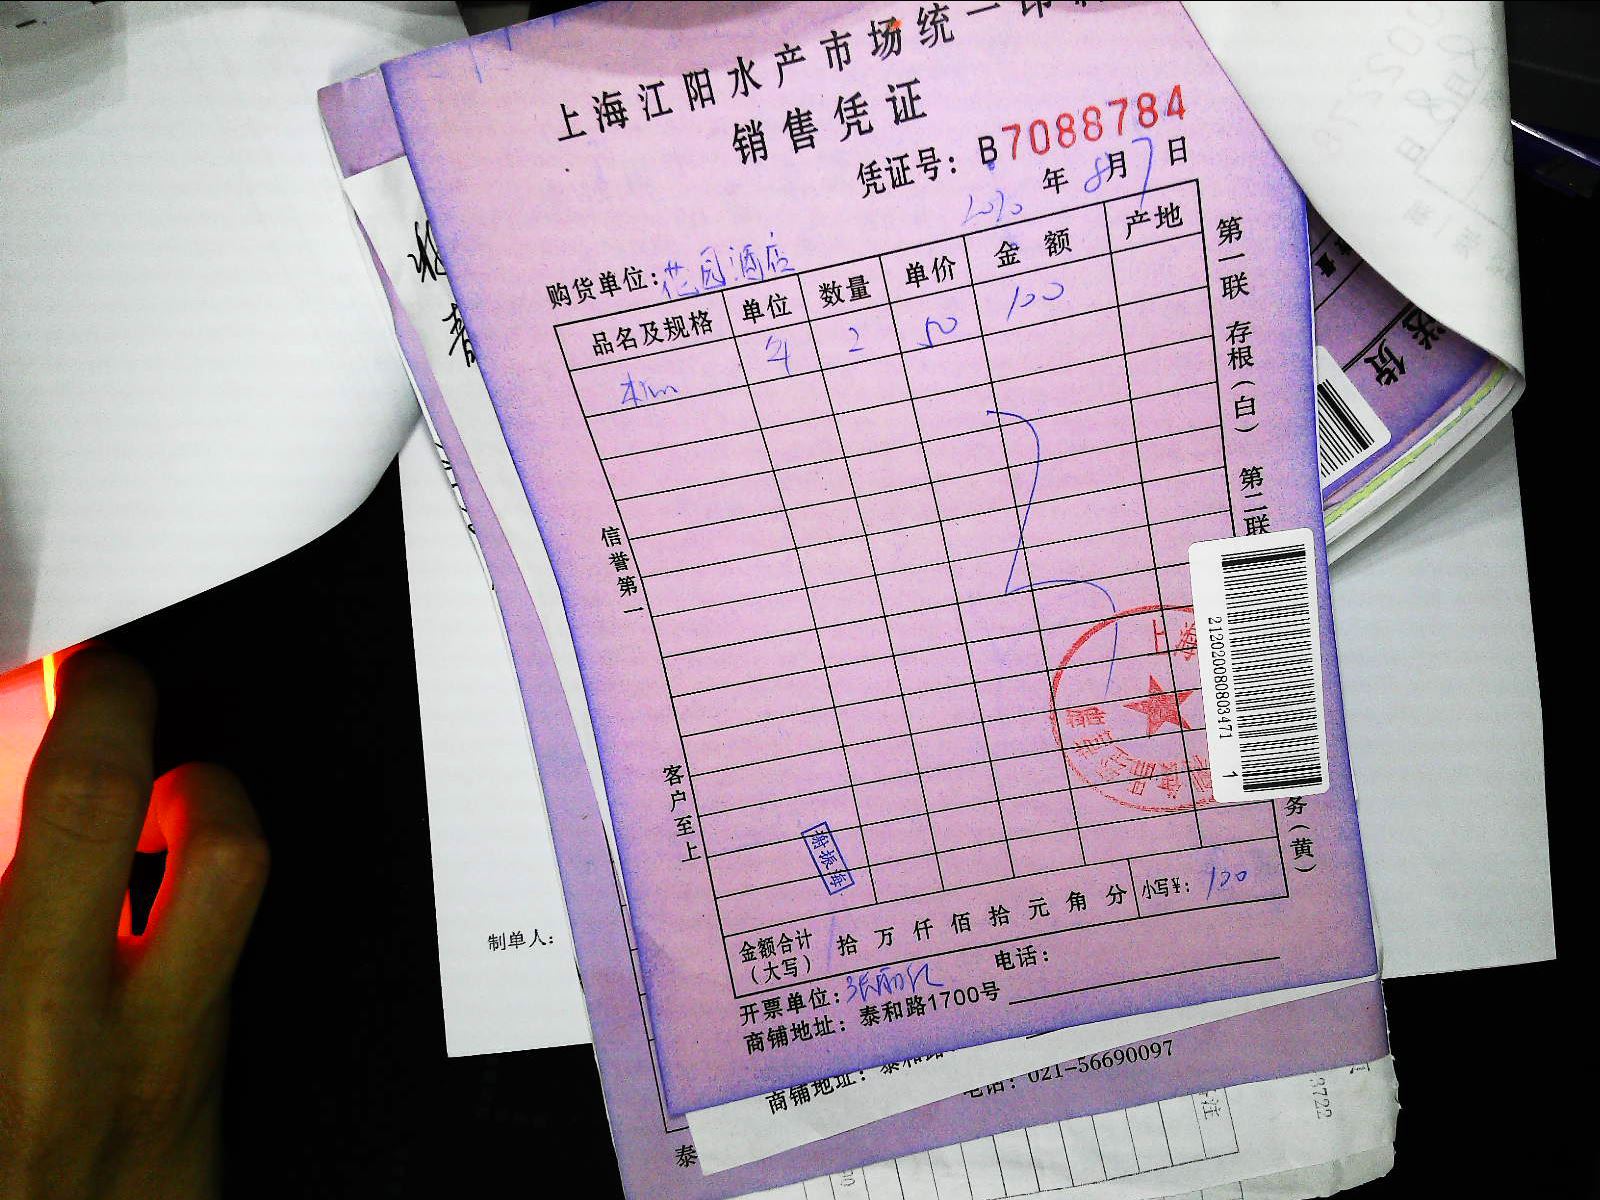 上海江阳水产市场统一印
销售凭证
凭证号：B7088784
2020年8月7日
购货单位：花园酒店
品名及规格 单位 数量 单价 金额 产地
2 50 100
信誉第一
客户至上
第一联 存根（白） 第二联
务（黄）
2120200808034711
谢振海
金额合计（大写） 拾 万 仟 佰 拾 元 角 分 小写¥：100
开票单位： 电话：
商铺地址：泰和路1700号
商铺地址：泰和路
电话：021-56690097
制单人：
泰
3722
注
送货